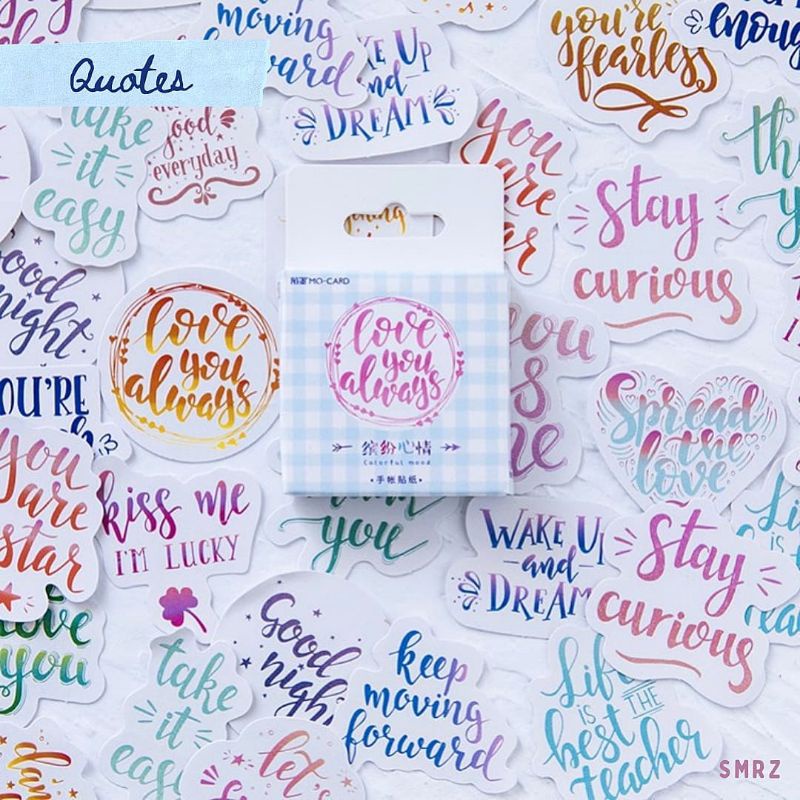 Quotes
moving
forward
WAKE UP
and
DREAM
you're
fearless
enough
take
it
easy
good
everyday
you
are
star
Stay
curious
good
night
love
you
always
MO·CARD
love
you
always
缤纷心情
Colorful mood
·手帐贴纸·
YOU'RE
you
are
star
kiss me
I'M LUCKY
you
Spread
the
love
WAKE UP
and
DREAM
Stay
curious
love
you
Good
night
take
it
easy
keep
moving
forward
Life
IS THE
best
teacher
let's
SMRZ